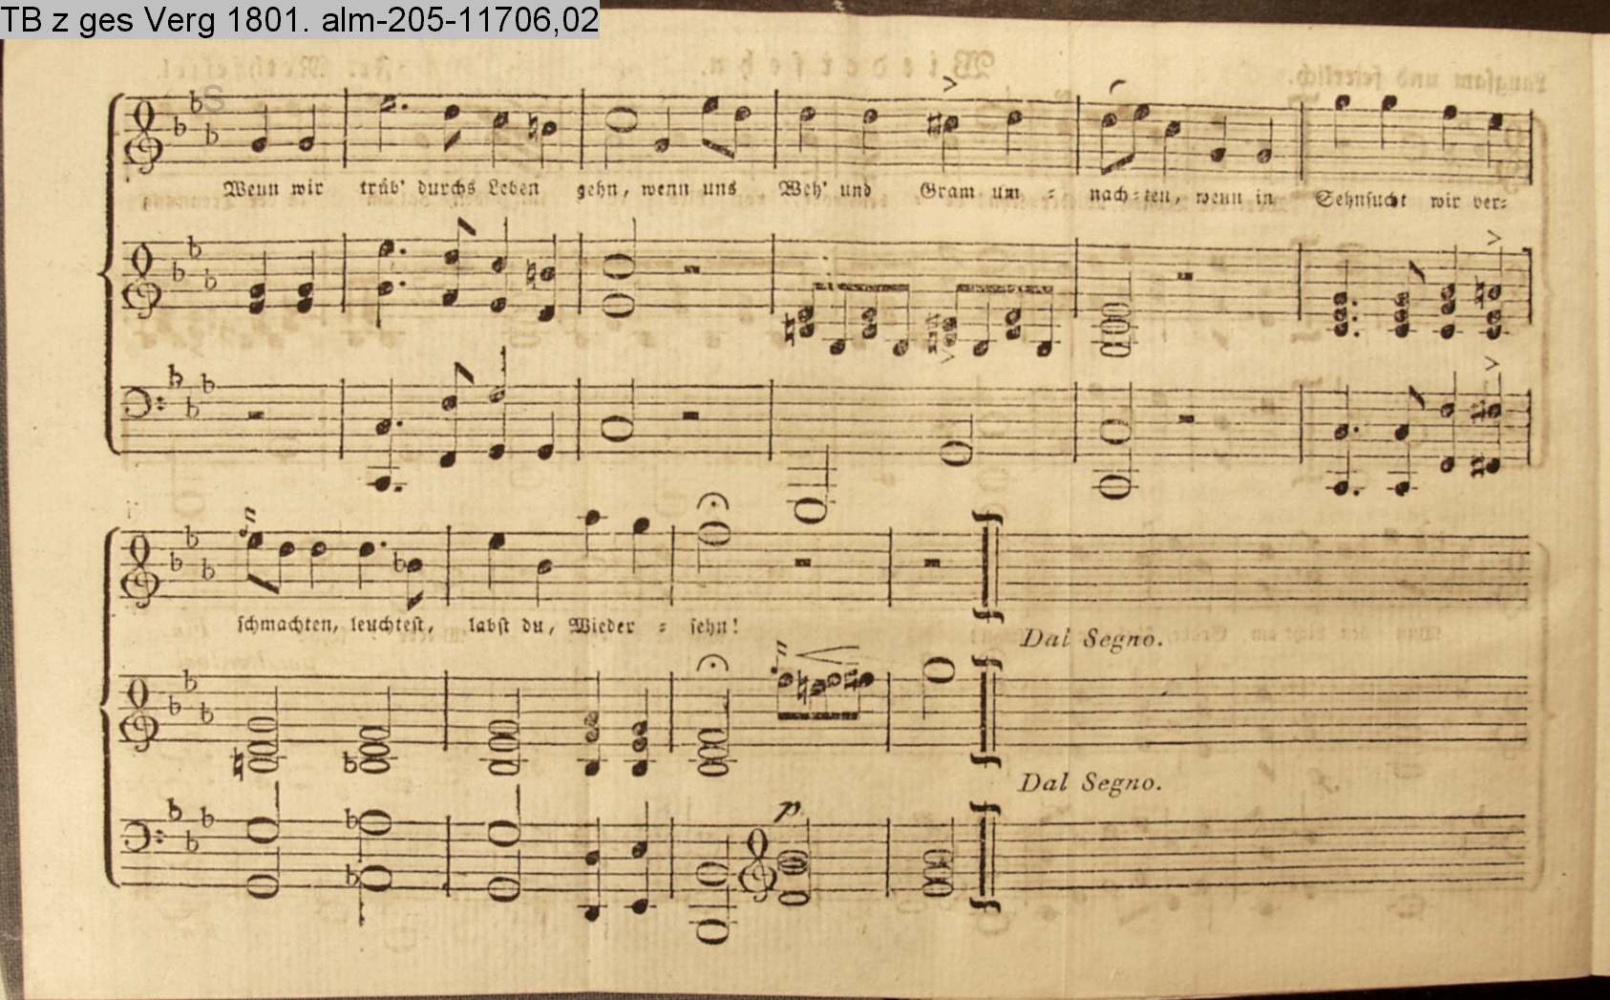 TB z ges Verg 1801. alm-205-11706,02
Wenn wir trüb' durchs Leben gehn, wenn uns Weh' und Gram um - nach-ten, wenn in Sehnsucht wir ver-
schmachten, leuchtest, labst du, Wieder - sehn!
Dal Segno.
Dal Segno.
p